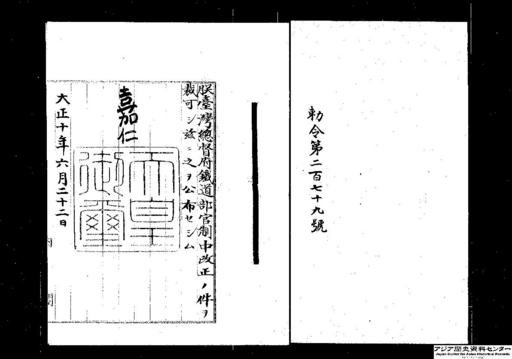 勅令第二百七十九號
朕臺灣總督府鐵道部官制中改正ノ件ヲ
裁可シ茲ニ之ヲ公布セシム
嘉仁
天皇
御璽
大正十年六月二十二日
内閣
アジア歴史資料センター
Japan Center for Asian Historical Records